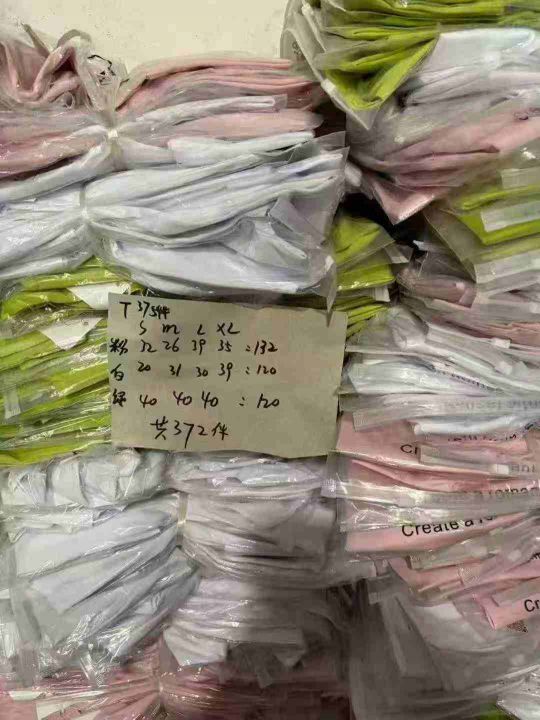 S M L XL
粉 32 26 39 35 : 132
白 20 31 30 39 : 120
绿 40 40 40 : 120
共372件
Create a